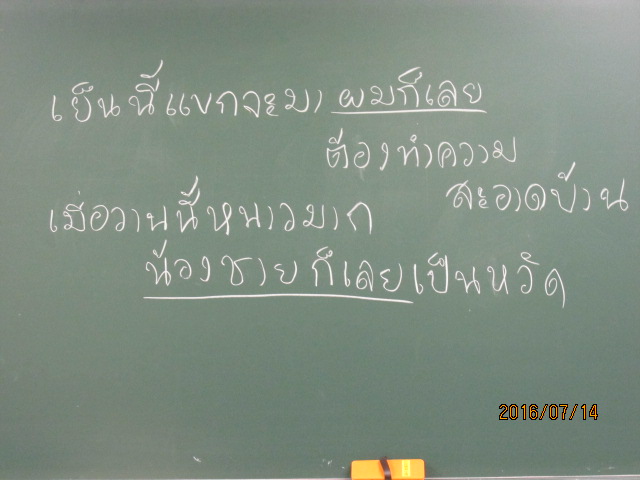 เย็นนี้แขกจะมา ผมก็เลย
ต้องทำความ
สะอาดบ้าน
เมื่อวานนี้หนาวมาก
น้องชายก็เลยเป็นหวัด
2016/07/14